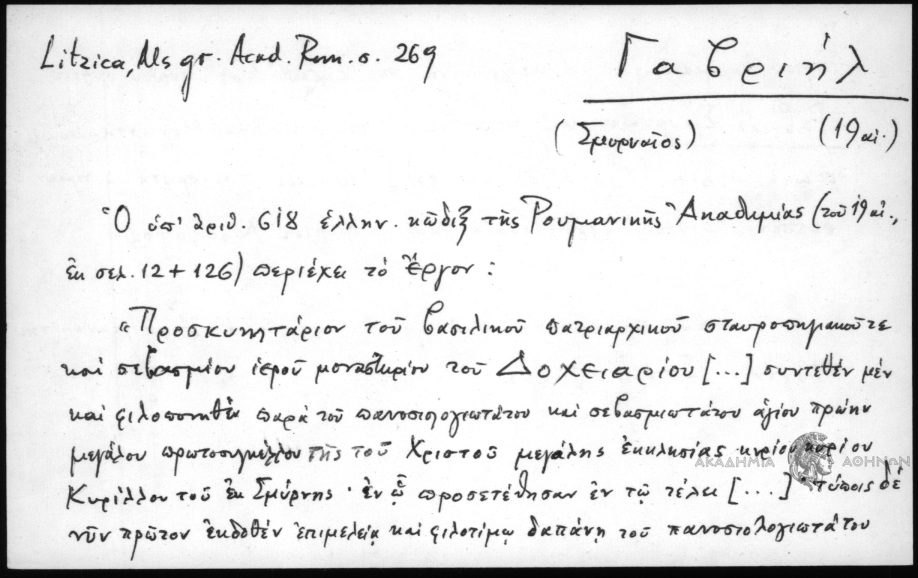 Litzica, Ms gr. Acad. Rom. σ. 269
Γαβριήλ
(Σμυρναῖος) (19 αἰ.)
Ὁ ὑπ' ἀριθ. 618 ἑλλην. κῶδιξ τῆς Ρουμανικῆς Ἀκαδημίας (τοῦ 19 αἰ.,
ἐκ σελ. 12 + 126) περιέχει τὸ ἔργον :
“Προσκυνητάριον τοῦ βασιλικοῦ πατριαρχικοῦ σταυροπηγιακοῦ τε
καὶ σεβασμίου ἱεροῦ μοναστηρίου τοῦ Δοχειαρίου [...] συντεθὲν μὲν
καὶ φιλοπονηθὲν παρὰ τοῦ πανοσιολογιωτάτου καὶ σεβασμιωτάτου ἁγίου πρώην
μεγάλου πρωτοσυγκέλλου τῆς τοῦ Χριστοῦ μεγάλης ἐκκλησίας κυρίου κυρίου
Κυρίλλου τοῦ ἐκ Σμύρνης · ἐν ᾧ προσετέθησαν ἐν τῷ τέλει [...] τύποις δὲ
νῦν πρῶτον ἐκδοθὲν ἐπιμελείᾳ καὶ φιλοτίμῳ δαπάνῃ τοῦ πανοσιολογιωτάτου
ΑΚΑΔΗΜΙΑ ΑΘΗΝΩΝ